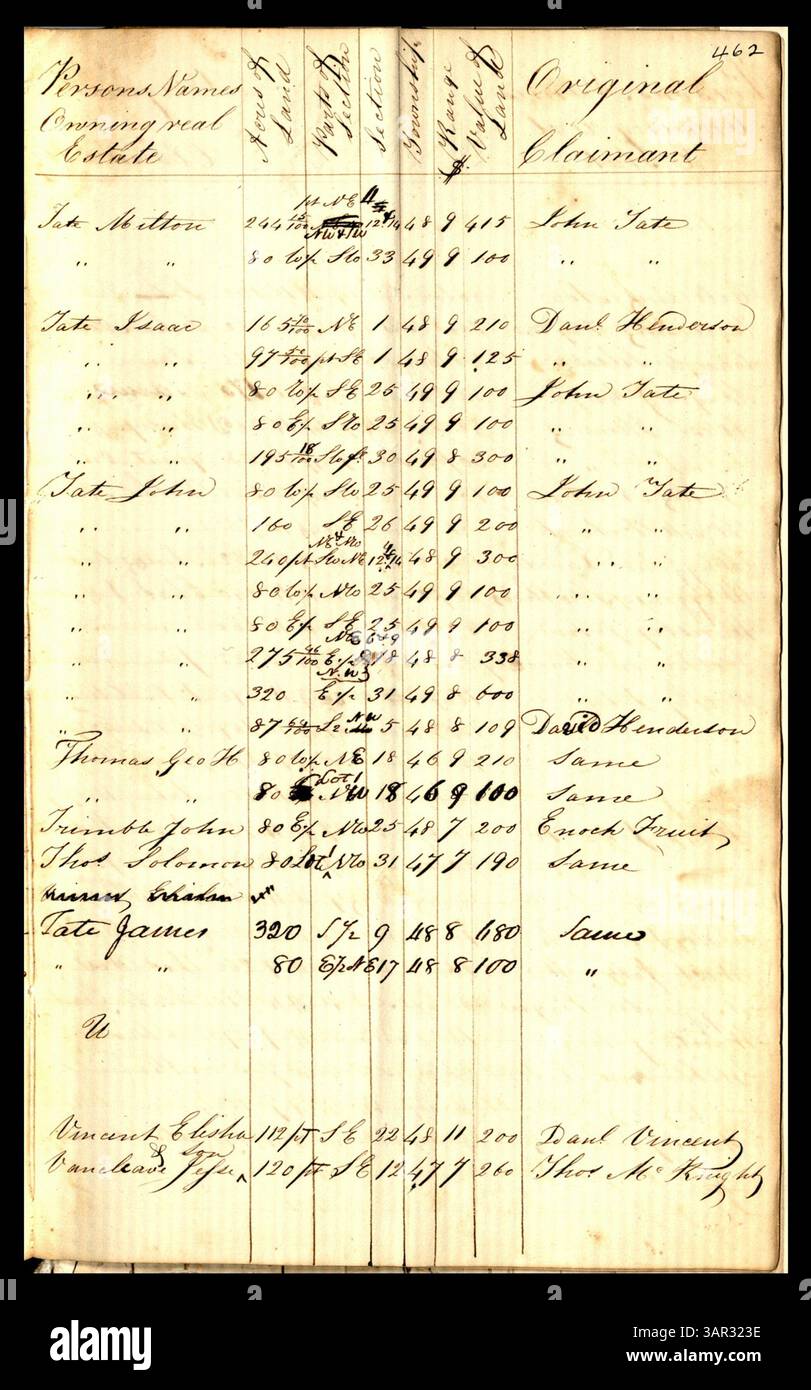 462
Persons Names Owning real Estate | Acres of Land | Parts of Section | Section | Township | Range | $ Value of Land | Original Claimant
Tate Milton 244 15/100 pt NE NW & SW 11 12 & 14 48 9 415 John Tate
" " 80 W/2 SW 33 49 9 100 " "
Tate Isaac 165 70/100 NE 1 48 9 210 Danl. Henderson
" " 97 50/100 pt SE 1 48 9 125 " "
" " 80 W/2 SE 25 49 9 100 John Tate
" " 80 E/2 SW 25 49 9 100 " "
" " 195 18/100 SW fr 30 49 8 300 " "
Tate John 80 W/2 SW 25 49 9 100 John Tate
" " 160 SE 26 49 9 200 " "
" " 240 pt NE & NW SW NE 12 14 48 9 300 " "
" " 80 W/2 NW 25 49 9 100 " "
" " 80 E/2 SE 25 49 9 100 " "
" " 275 96/100 NE E/2 18 48 8 338 " "
" " 320 E/2 31 49 8 600 " "
" " 87 64/100 NW 5 48 8 109 David Henderson
Thomas Geo H 80 W/2 NE 18 46 9 210 Same
" " 80 Lot 1 NW 18 46 9 100 Same
Trimble John 80 E/2 NW 25 48 7 200 Enoch Fruit
Thos. Solomon 80 Lot 1 NW 31 47 7 190 Same
Tate James 320 S/2 9 48 8 480 Same
" " 80 E/2 NE 17 48 8 100 "
U
Vincent Elisha 112 pt SE 22 48 11 200 Danl Vincent
Vancleave Jesse & Son 120 pt SE 12 47 7 260 Thos Mc Knight
alamy
a
a
alamy
Image ID: 3AR323E
www.alamy.com